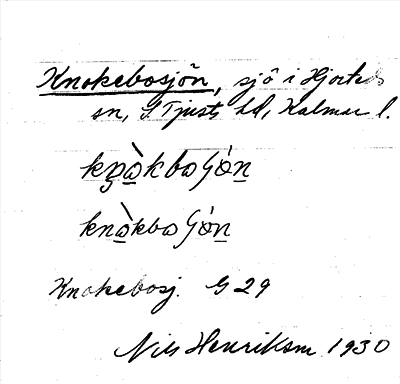 Knokebosjön, sjö i Hjorteds
sn, S Tjusts hd, Kalmar l.
kṇàkboʃón
knàkboʃón
Knokebosj. G 29
Nils Henrikson 1930